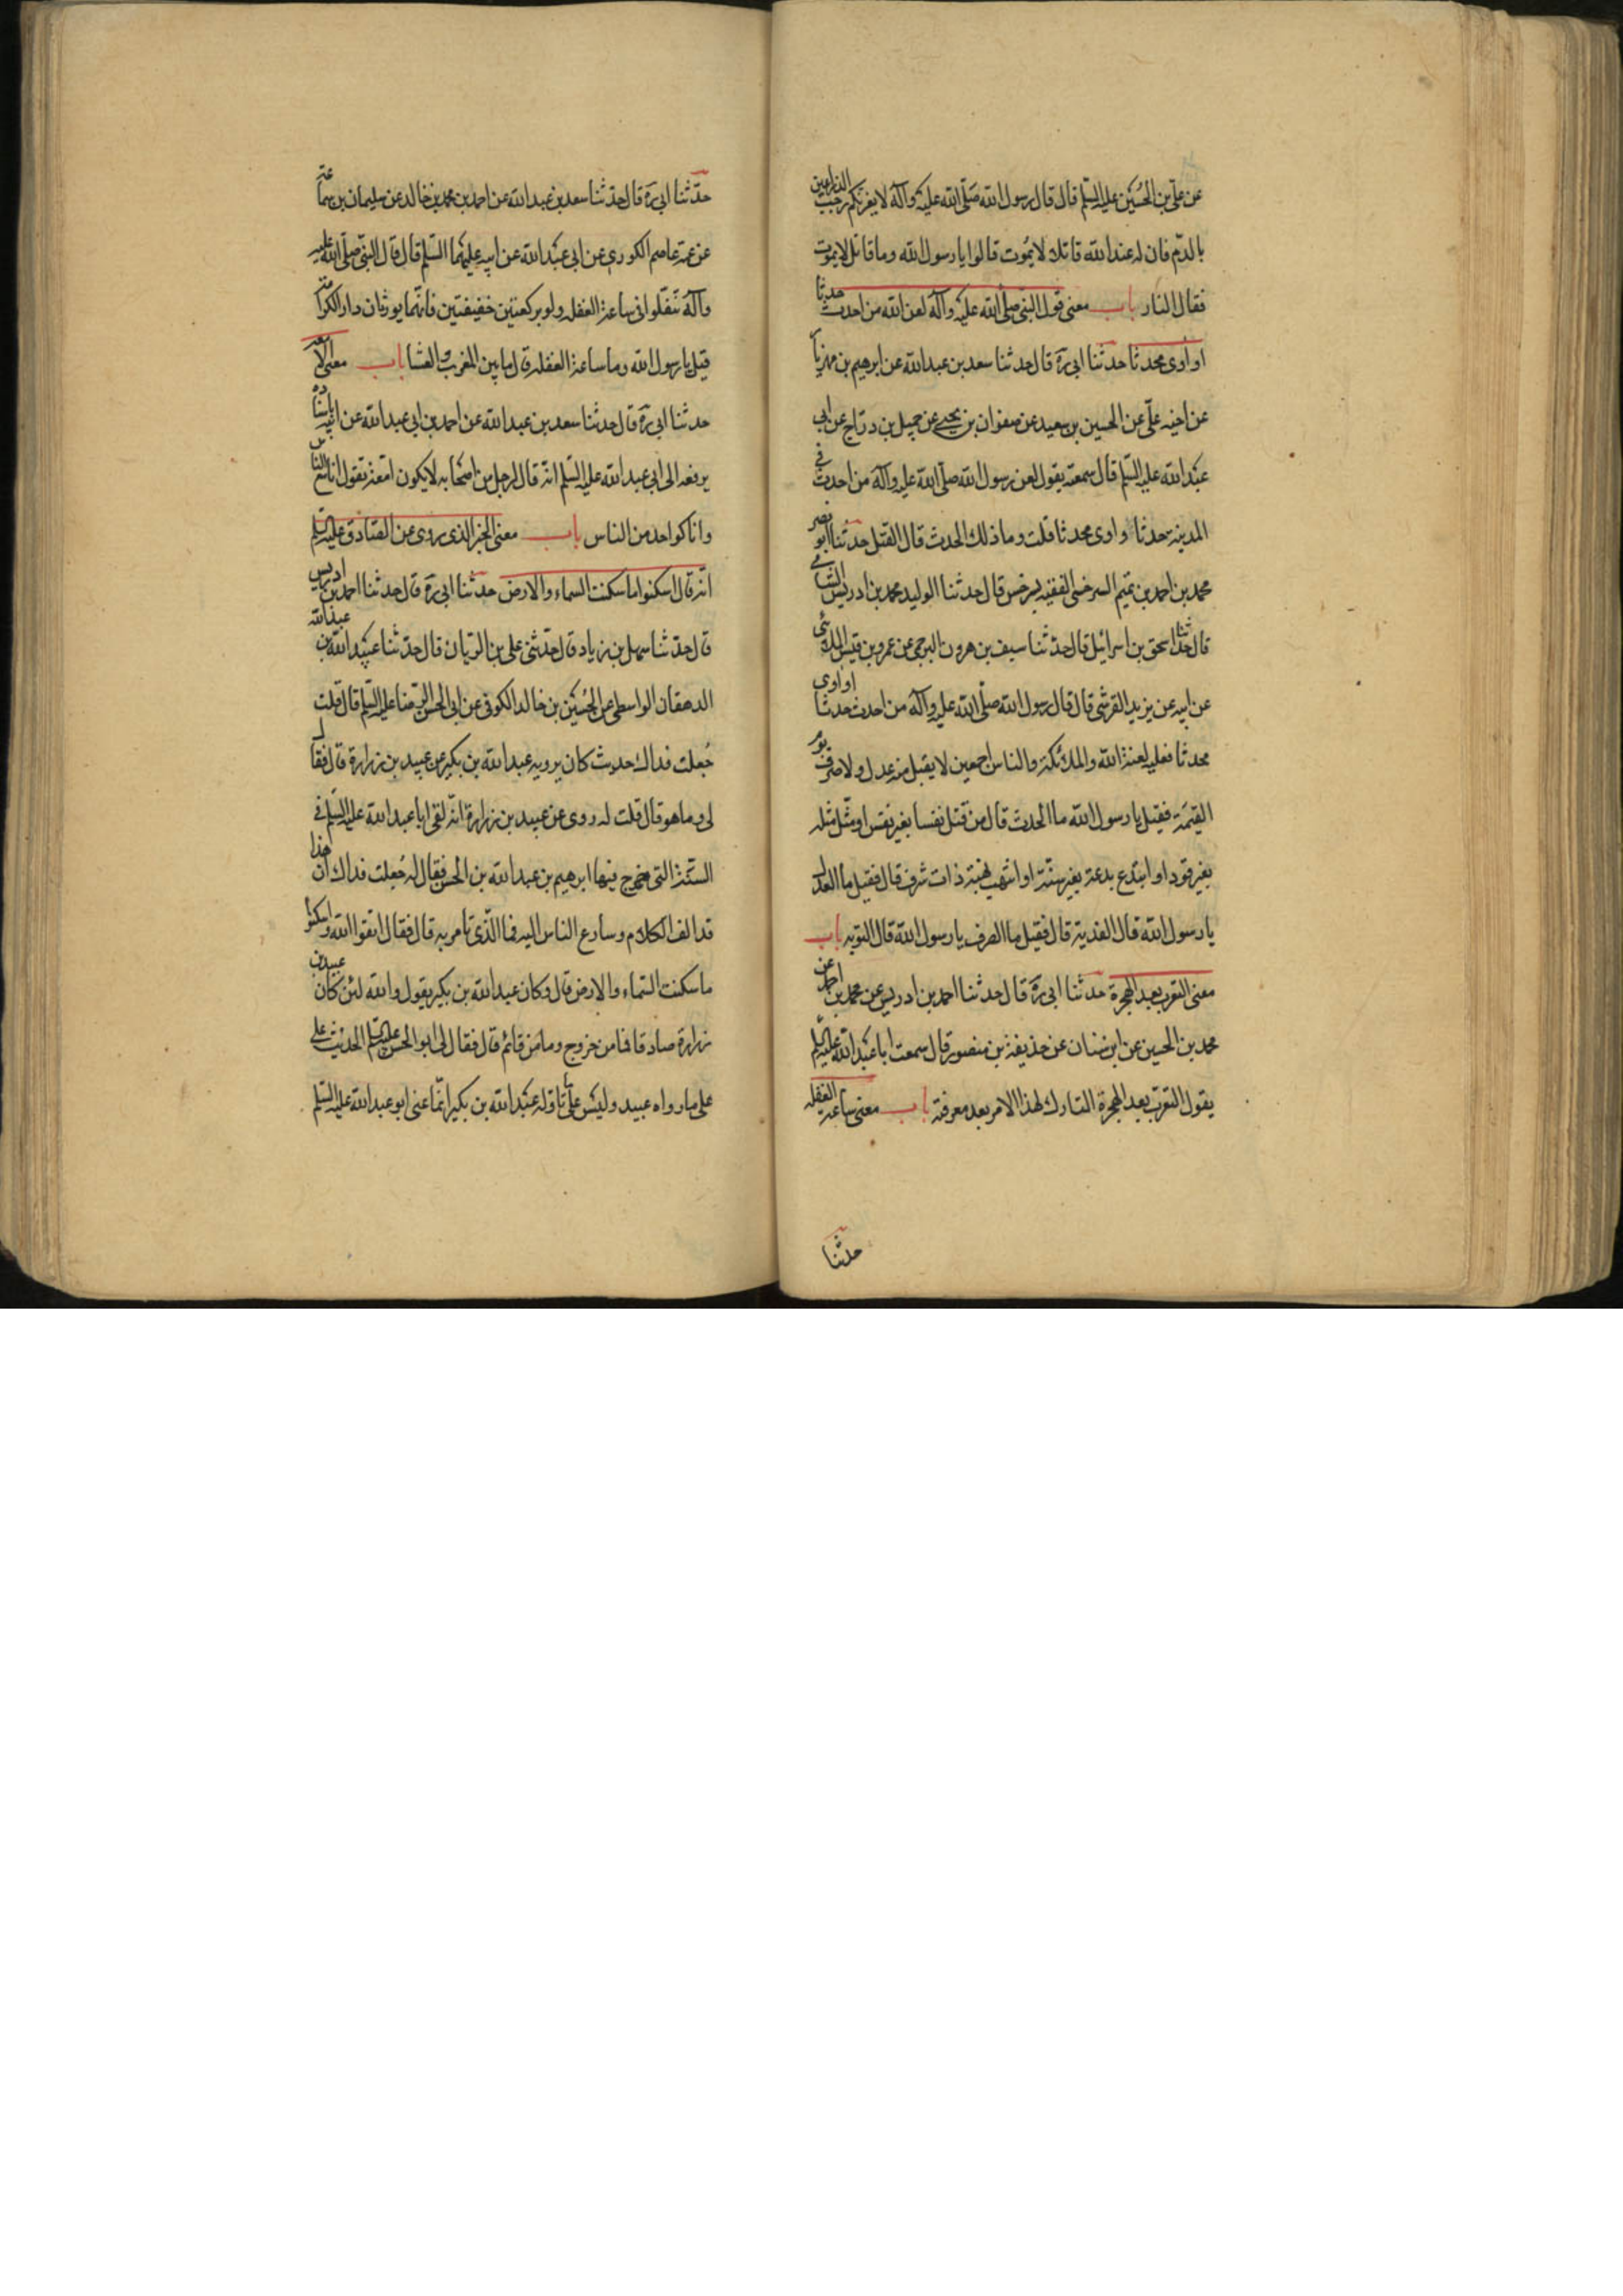 عن علي بن الحُسَين عليه السّلم قال قال رسول الله صَلّى الله عليه وآله لا يغرّنكم رحب الذراعين
بالدّم فان له عند الله قاتلا لا يمُوت قالوا يا رسول الله وما قاتل لا يموت
فقال النار باب معنى قول النّبي صلّى الله عليه وآله لعن الله من احدث حدثا
او اوى محدثا حدثنا ابي ره قال حدثنا سعد بن عبد الله عن ابرهيم بن مهزيا
عن اخيه علّي عن الحسين بن سعيد عن صفوان بن يحيى عن جميل بن درّاج عن ابي
عبد الله عليه السّلم قال سمعته يقول لعن رسول الله صلّى الله عليه وآله من احدث في
المدينه حدثا و اوى محدثا قلت وما ذلك الحدث قال القتل حدثنا ابو نصر
محمد بن احمد بن تميم السرخسى الفقيه بسرخس قال حدثنا الوليد محمد بن ادريس الشامي
قال حدثنا اسحق بن اسرائيل قال حدثنا سيف بن هرون البرجمى عن عمرو بن قيس الملائي
عن ابيه عن يزيد القرشى قال قال رسول الله صلّى الله عليه وآله من احدث حدثا او اوى
محدثا فعليه لعنة الله والملائكة والناس اجمعين لا يقبل منه عدل ولا صرف يوم
القيٰمة فقيل يا رسول الله ما الحدث قال من قتل نفسا بغير نفس او مثّل مثله
بغير قود او ابتدع بدعة بغير سنّة او انتهب نهبة ذات شرف قال فقيل ما العدل
يا رسول الله قال الفدية قال فقيل ما الصرف يا رسول الله قال التوبه باب
معنى التعرب بعد الهجرة حدثنا ابي ره قال حدثنا احمد بن ادريس عن محمد بن احمد عن
محمد بن الحسين عن ابن سنان عن حذيفة بن منصور قال سمعت ابا عبد الله عليه السّلم
يقول التعرّب بعد الهجرة التارك لهذا الامر بعد معرفته باب معنى ساعة الغفله
حدثنا
حدّثنا ابي ره قال حدّثنا سعد بن عبد الله عن احمد بن محمد بن خالد عن سليمان بن سماعة
عن عمّه عاصم الكورى عن ابي عبد الله عن ابيه عليهما السّلم قال قال النّبي صلّى الله عليه
وآله تنفّلوا في ساعة الغفله ولو بركعتين خفيفتين فانّهما يورثان دار الكرامة
قيل يا رسول الله وما ساعة الغفله قال ما بين المغرب والعشا باب معنى الامعة
حدثنا ابي ره قال حدثنا سعد بن عبد الله عن احمد بن ابي عبد الله عن ابيه باسناده
يرفعه الى ابي عبد الله عليه السّلم انّه قال لرجل من اصحابه لا يكون امّعة تقول انا مع الناس
وانا كواحد من الناس باب معنى الخبر الذى روى عن الصّادق عليه السّلم
انّه قال اسكنوا ما سكنت السماء والارض حدثنا ابي ره قال حدثنا احمد بن ادريس
قال حدّثنا سهل بن زياد قال حدّثنى علي بن الريّان قال حدّثنا عبيد الله بن عبد الله
الدهقان الواسطى عن الحُسَين بن خالد الكوفى عن ابي الحسن الرّضا عليه السّلم قال قلت
جُعلت فداك حديث كان يرويه عبد الله بن بكير عن عبيد بن زرارة قال فقال
لى وما هو قال قلت له روى عن عبيد بن زرارة انّه لقى ابا عبد الله عليه السّلم في
السّنة التى خرج فيها ابرهيم بن عبد الله بن الحسن فقال له جُعلت فداك ان هذا
قد الف الكلام وسارع الناس اليه فما الّذى تامر به قال فقال اتقوا الله واسكنوا
ما سكنت السّماء والارض قال وكان عبد الله بن بكير يقول والله لئن كان عبيد بن
زرارة صادقا فما من خروج وما من قائم قال فقال لى ابو الحسن عليه السّلم الحديث على
على ما رواه عبيد وليس على ما تاوله عبد الله بن بكير انّما عنى ابو عبد الله عليه السّلم